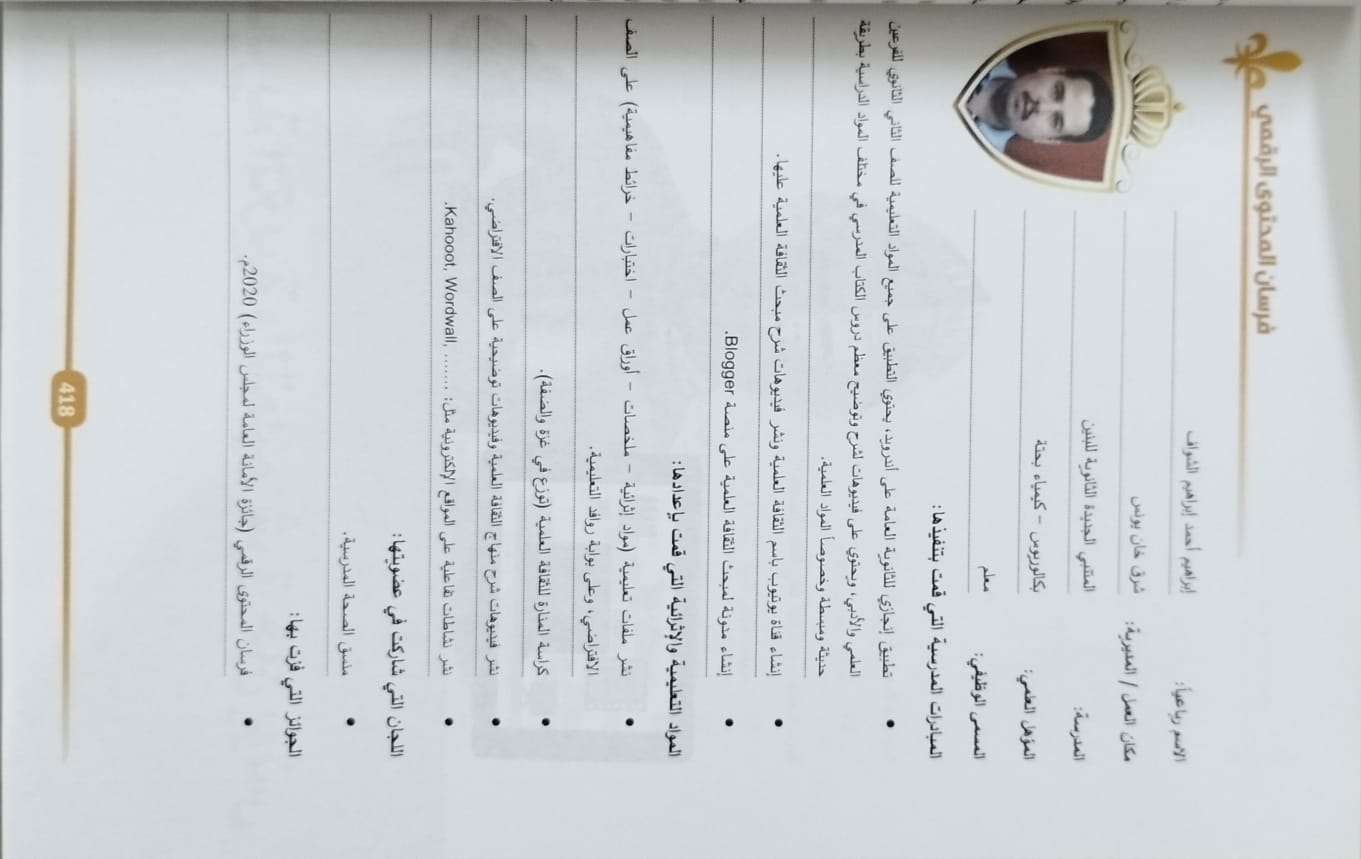 فرسان المحتوى الرقمي
الاسم رباعياً: إبراهيم أحمد إبراهيم الشواف
مكان العمل / المديرية: شرق خان يونس
المدرسة: المتنبي الجديدة الثانوية للبنين
المؤهل العلمي: بكالوريوس - كيمياء بحتة
المسمى الوظيفي: معلم
المبادرات المدرسية التي قمت بتنفيذها:
• تطبيق إنجازي للثانوية العامة على أندرويد، يحتوي التطبيق على جميع المواد التعليمية للصف الثاني الثانوي للفرعين
العلمي والأدبي، ويحتوي على فيديوهات لشرح وتوضيح معظم دروس الكتاب المدرسي في مختلف المواد الدراسية بطريقة
حديثة ومبسطة وخصوصاً المواد العلمية.
• إنشاء قناة يوتيوب باسم الثقافة العلمية ونشر فيديوهات شرح مبحث الثقافة العلمية عليها.
• إنشاء مدونة لمبحث الثقافة العلمية على منصة Blogger.
المواد التعليمية والإثرائية التي قمت بإعدادها:
• نشر ملفات تعليمية (مواد إثرائية - ملخصات - أوراق عمل - اختبارات - خرائط مفاهيمية) على الصف
الافتراضي، وعلى بوابة روافد التعليمية.
• كراسة المنارة للثقافة العلمية (توزع في غزة والضفة).
• نشر فيديوهات شرح منهاج الثقافة العلمية وفيديوهات توضيحية على الصف الافتراضي.
• نشر نشاطات تفاعلية على المواقع الإلكترونية مثل: ....... ,Kahooot, Wordwall.
اللجان التي شاركت في عضويتها:
• منسق الصحة المدرسية.
الجوائز التي فزت بها:
• فرسان المحتوى الرقمي (جائزة الأمانة العامة لمجلس الوزراء) 2020م.
418